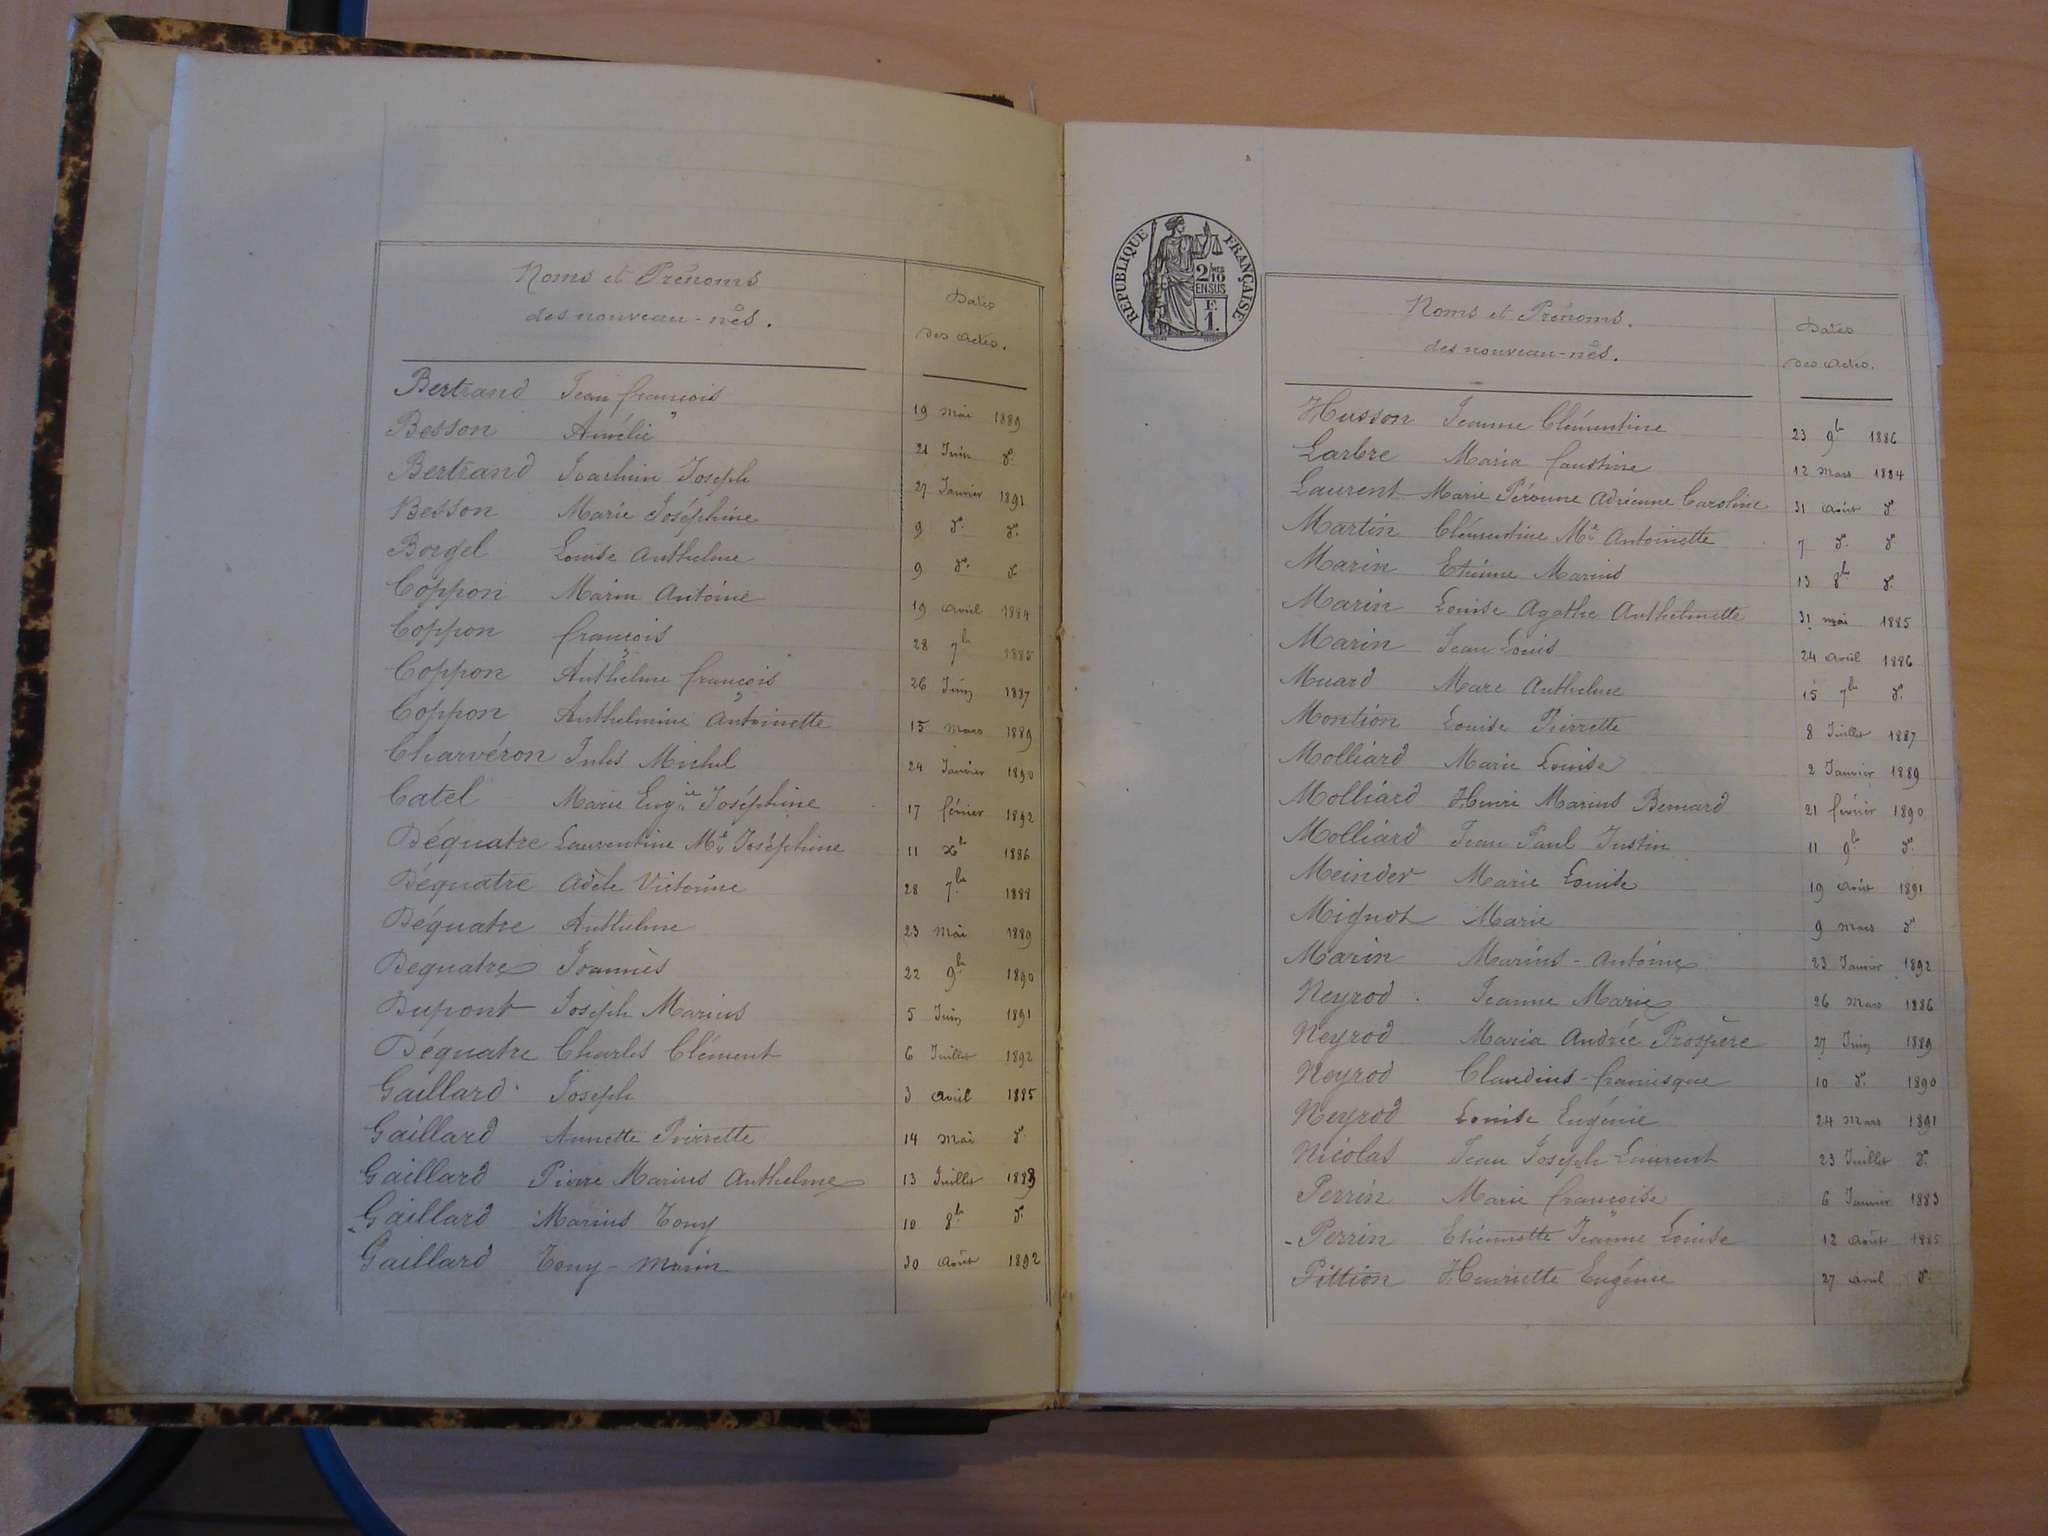 Noms et Prénoms
des nouveau-nés.
Dates
des actes.
Bertrand Jean françois 19 mai 1889
Besson Amélie 21 Juin do
Bertrand Joachim Joseph 27 Janvier 1891
Besson Marie Joséphine 9 do do
Borgel Louise Anthelme 9 do do
Coppon Marin Antoine 19 avril 1884
Coppon françois 28 7bre 1885
Coppon Anthelme françois 26 Juin 1887
Coppon Anthelmine Antoinette 15 mars 1889
Charvéron Jules Michel 24 Janvier 1890
Catel Marie Eugie Joséphine 17 février 1892
Déquatre Laurentine Mie Joséphine 11 Xbre 1886
Déquatre Adèle Victorine 28 7bre 1888
Déquatre Anthelme 23 mai 1889
Dequatre Joannès 22 9bre 1890
Dupont Joseph Marius 5 Juin 1891
Déquatre Charles Clément 6 Juillet 1892
Gaillard Joseph 3 avril 1885
Gaillard Annette Pierrette 14 mai do
Gaillard Pierre Marius Anthelme 13 Juillet 1888
Gaillard Marius Tony 10 8bre do
Gaillard Tony-Marin 30 Août 1892
RÉPUBLIQUE FRANÇAISE
2/10 EN SUS
F.
1.
Noms et Prénoms.
des nouveau-nés.
Dates
des actes.
Husson Jeanne Clémentine 23 9bre 1886
Larbre Maria faustine 12 mars 1884
Laurent Marie Péroune Adrienne Caroline 31 août do
Martin Clémentine Mie Antoinette 7 do do
Marin Etienne Marius 13 8bre do
Marin Louise Agathe Anthelmette 31 mai 1885
Marin Jean Louis 24 avril 1886
Muard Marc Anthelme 15 7bre do
Montion Louise Pierrette 8 Juillet 1887
Molliard Marie Louise 2 Janvier 1889
Molliard Henri Marius Bernard 21 février 1890
Molliard Jean Paul Justin 11 9bre do
Meinder Marie Louise 19 août 1891
Mignot Marie 9 mars do
Marin Marius-Antoine 23 Janvier 1892
Neyrod Jeanne Marie 26 Mars 1886
Neyrod Maria Andrée Prospère 27 Juin 1889
Neyrod Claudius-francisque 10 do 1890
Neyrod Louise Eugénie 24 Mars 1891
Nicolas Jean Joseph Laurent 23 Juillet do
Perrin Marie françoise 6 Janvier 1883
Perrin Etiennette Jeanne Louise 12 août 1885
Pittion Henriette Eugénie 27 avril do